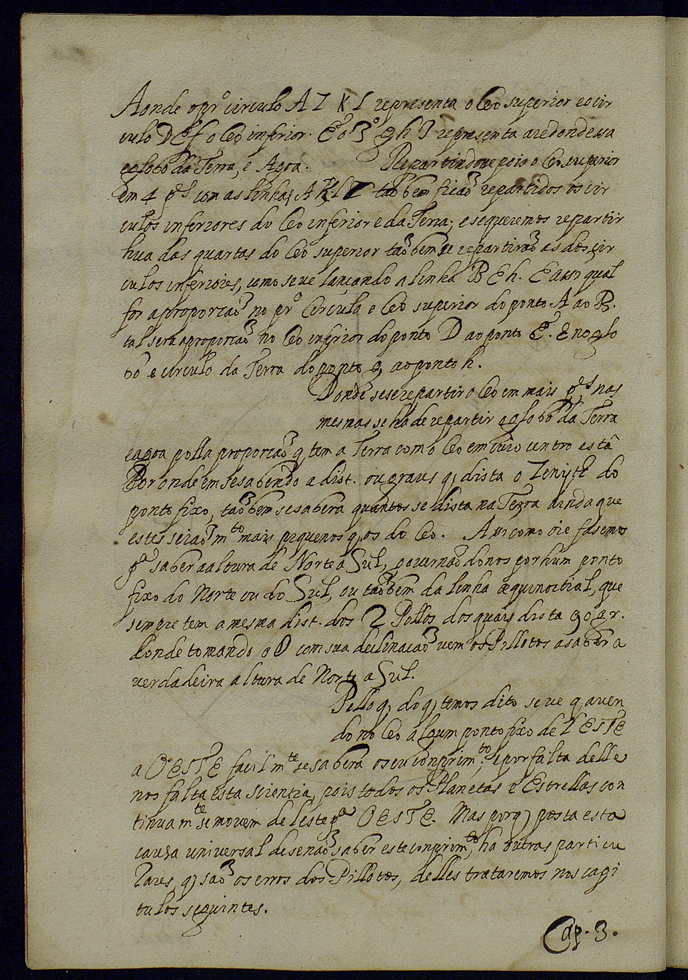 Aonde o pr.º circulo A I K L representa o Ceo superior e o cir
culo D E f o Ceo inferior. E o 3.º g h I representa a redondeza
e globo da Terra, e Agoa. Repartindose pois o Ceo superior
em 4 p.tes com as linhas A K L I taõbem ficaõ repartidos os cir
culos inferiores do Ceo inferior e da Terra; e se queremos repartir
hua das quartas do Ceo superior taõbem se repartiraõ as dos cir
culos inferiores, como se ve lancando a linha B E h. E assi qual
for a proporcaõ no pr.º Circulo e Ceo superior do ponto A ao B.
tal sera a proporcaõ no Ceo inferior do ponto D ao ponto E. E no glo
bo e circulo da Terra do ponto g ao ponto h.
Donde se se repartir o Ceo em mais p.tes nas
mesmas se ha de repartir o globo da Terra
e agoa polla proporcaõ q tem a Terra com o Ceo em cuio centro está
Por onde em se sabendo a dist. ou graus q dista o Zenith do
ponto fixo, taõbem se sabera quantos se dista na Terra ainda que
estes seiaõ m.to mais pequenos q os do Ceo. Assi como oie fasemos
p.ª saber a altura de Norte a Sul, governaõdonos por hum ponto
fixo do Norte ou do Sul, ou taõbem da linha æquinoctial, que
sempre tem a mesma dist. dos 2 Pollos dos quais dista 90 gr.
donde tomando o O com sua declinacaõ vem os Pillotos a saber a
verdadeira altura de Norte a Sul.
Pello q do q temos dito se ve q aven
do no Ceo algum ponto fixo de LESTE
a OESTE facilm.te se sabera o seu comprim.to, e por falta delle
nos falta esta scientia, pois todos os Planetas e Estrellas con
tinuam.te se movem de Leste p.ª OESTE. Mas porq posta esta
cauza universal de se naõ saber este comprim.to, ha outras particu
lares, q saõ os erros dos Pillotos, delles trataremos nos capi
tulos seguintes.
Cap. 3.